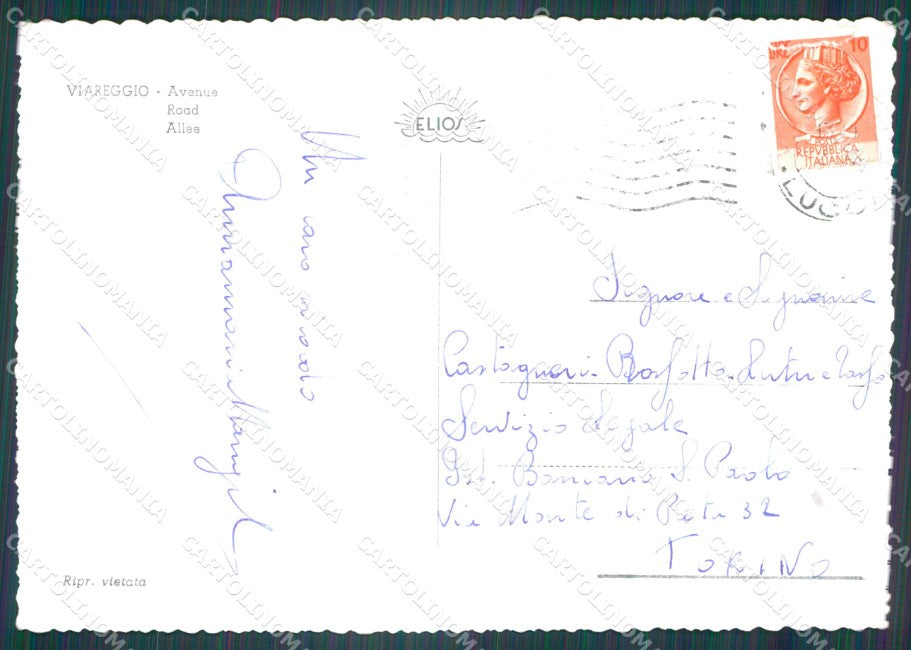 VIAREGGIO - Avenue
Road
Allee
ELIOS
LIRE 10
POSTE
REPVBBLICA
ITALIANA
LUG
Un caro ricordo
Signore e Signorine
Castagneri - Borfotto -
Servizio Legale
Ist. Bancario S. Paolo
Via Monte di Pietà 32
TORINO
Ripr. vietata
CARTOLINOMANIA